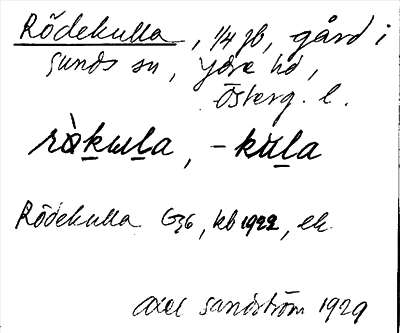 Rödekulla, 1/4 jb, gård i
Sunds sn, Ydre hd,
Österg. l.
rò̀kula, -kùla
Rödekulla G36, kb 1922, ek.
Axel Sandström 1929